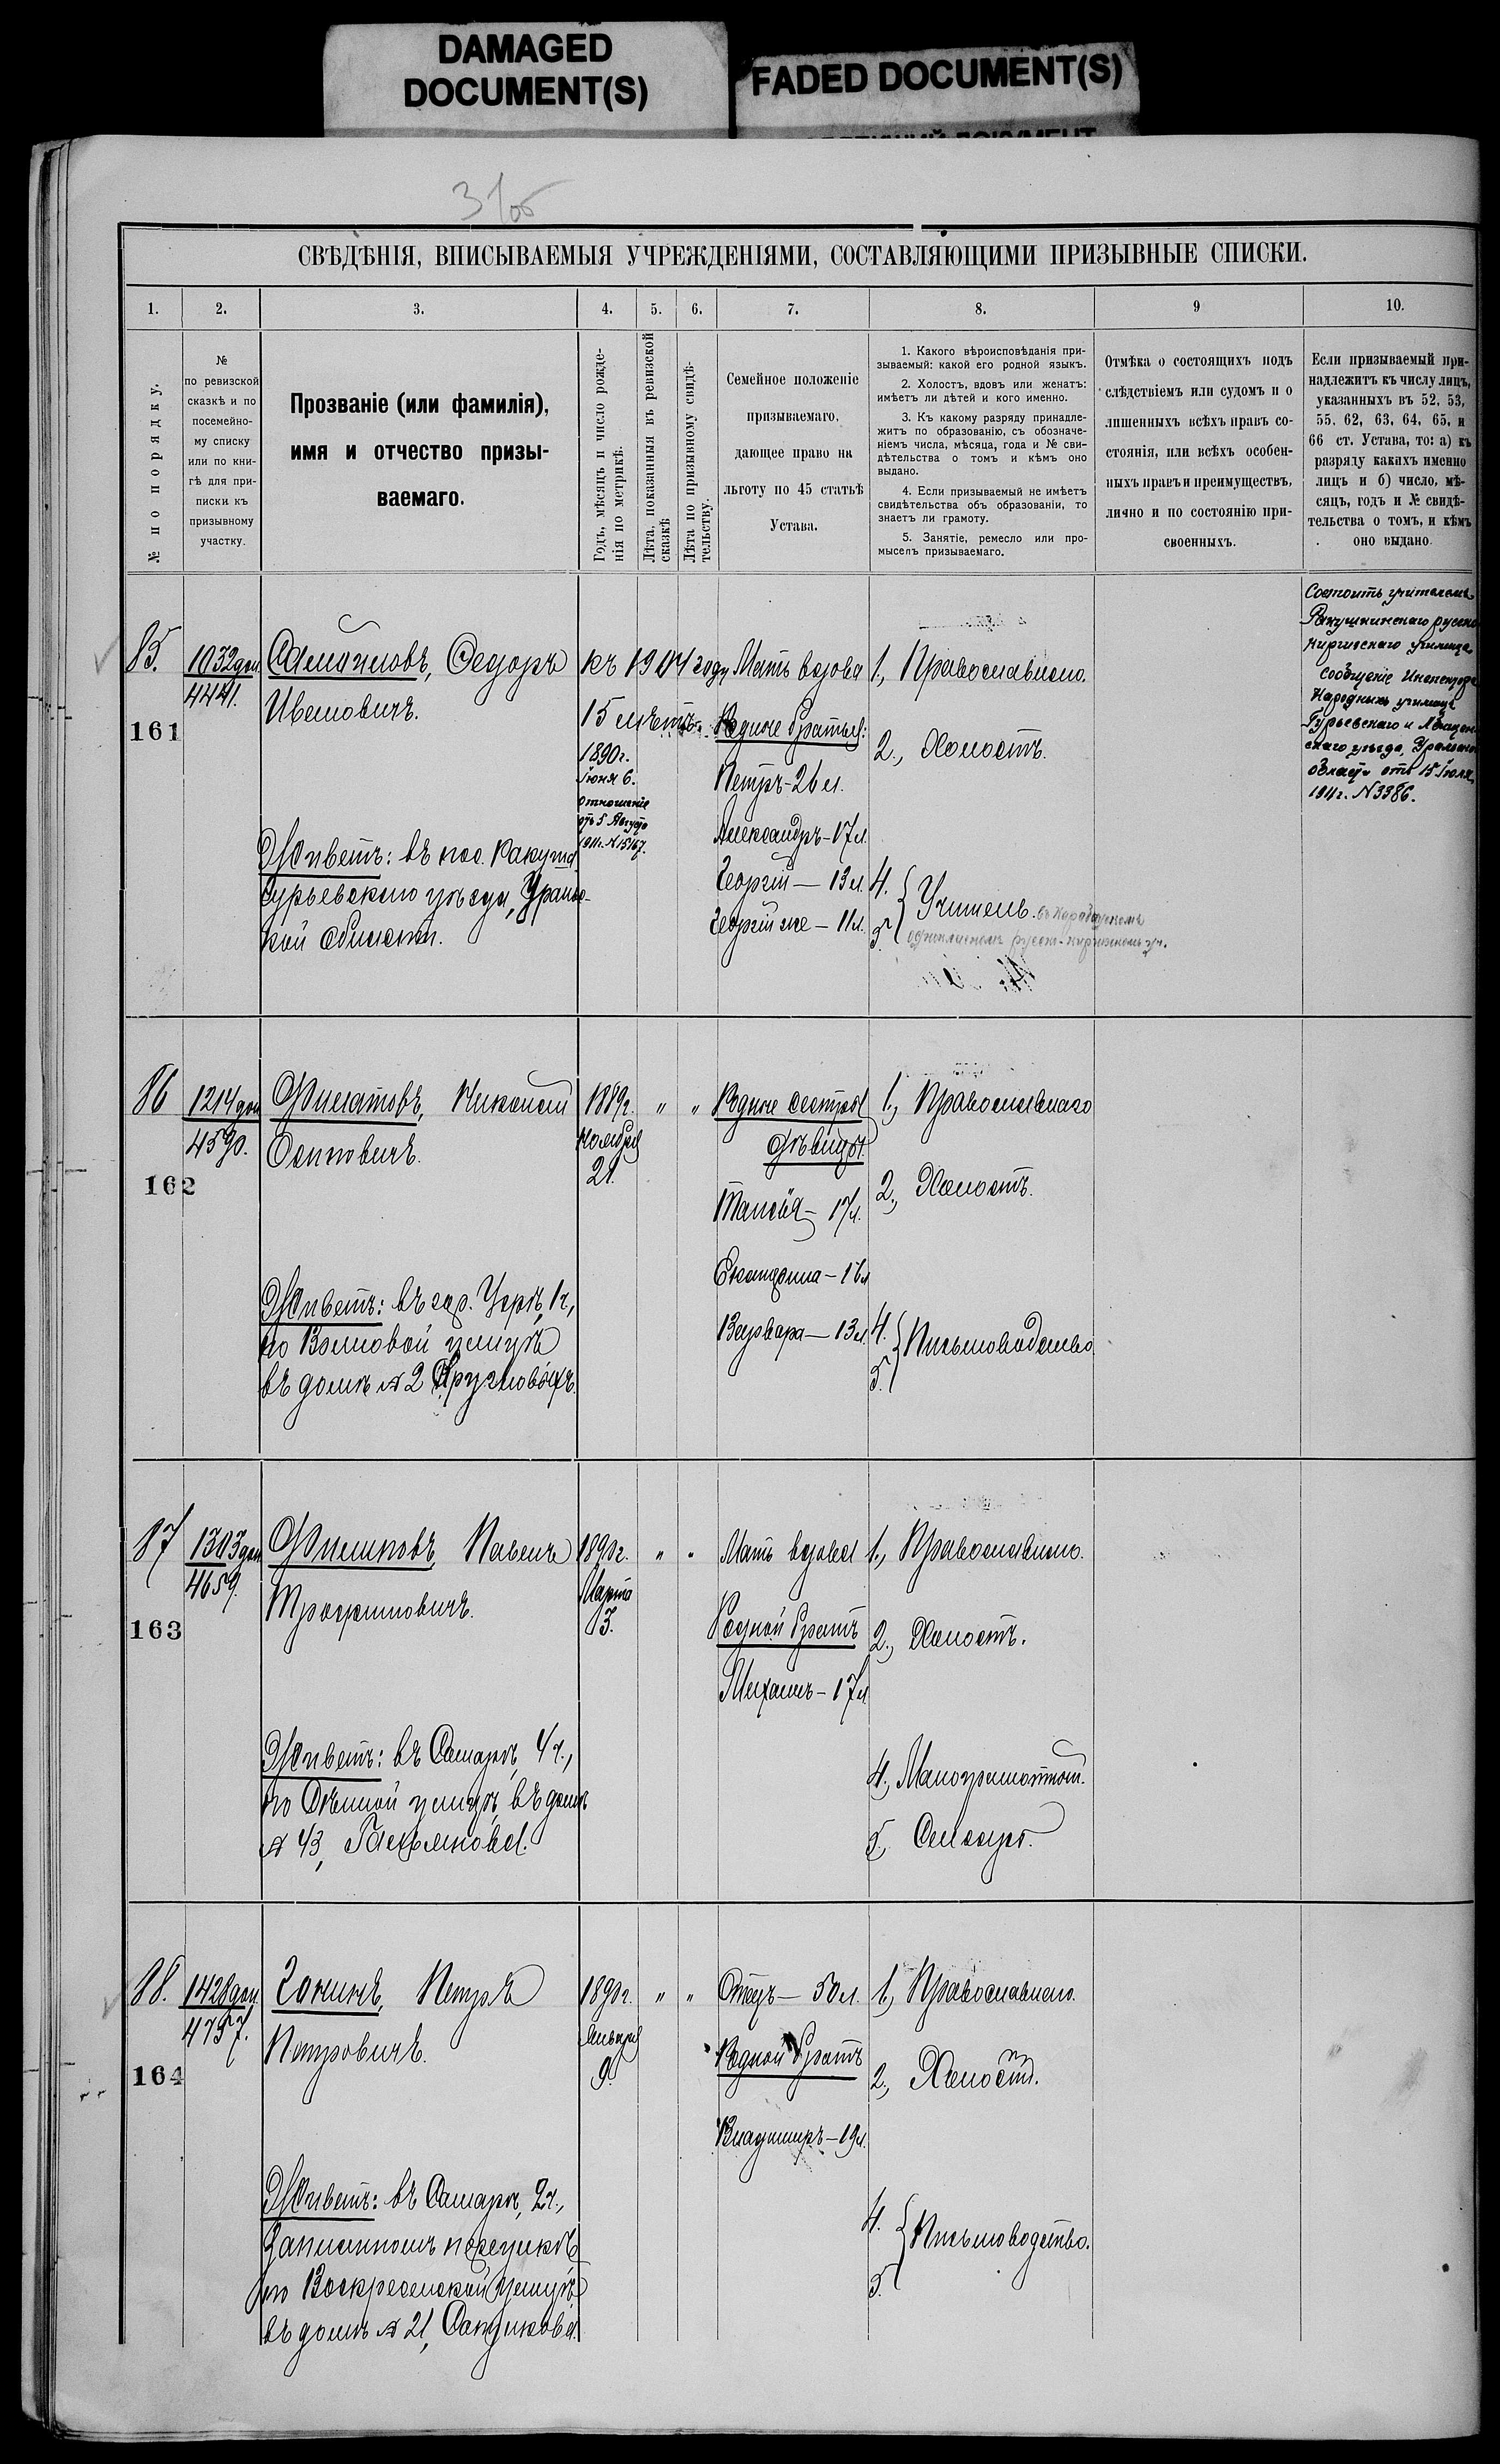 DAMAGED
DOCUMENT(S)
FADED DOCUMENT(S)
СВѢДѢНІЯ, ВПИСЫВАЕМЫЯ УЧРЕЖДЕНІЯМИ, СОСТАВЛЯЮЩИМИ ПРИЗЫВНЫЕ СПИСКИ.
1.
2.
3.
4.
5.
6.
7.
8.
9
10.
№ по порядку.
№
по ревизской
сказкѣ и по
посемейно-
му списку
или по кни-
гѣ для при-
писки къ
призывному
участку.
Прозваніе (или фамилія),
имя и отчество призы-
ваемаго.
Годъ, мѣсяцъ и число рожде-
нія по метрикѣ.
Лѣта, показанныя въ ревизской
сказкѣ
Лѣта по призывному свидѣ-
тельству.
Семейное положеніе
призываемаго,
дающее право на
льготу по 45 статьѣ
Устава.
1. Какого вѣроисповѣданія при-
зываемый: какой его родной языкъ.
2. Холостъ, вдовъ или женатъ:
имѣетъ ли дѣтей и кого именно.
3. Къ какому разряду принадле-
житъ по образованію, съ обозначе-
ніемъ числа, мѣсяца, года и № сви-
дѣтельства о томъ и кѣмъ оно
выдано.
4. Если призываемый не имѣетъ
свидѣтельства объ образованіи, то
знаетъ ли грамоту.
5. Занятіе, ремесло или про-
мыселъ призываемаго.
Отмѣка о состоящихъ подъ
слѣдствіемъ или судомъ и о
лишенныхъ всѣхъ правъ со-
стоянія, или всѣхъ особен-
ныхъ правъ и преимуществъ,
лично и по состоянію при-
своенныхъ.
Если призываемый при-
надлежитъ къ числу лицъ,
указанныхъ въ 52, 53,
55, 62, 63, 64, 65, и
66 ст. Устава, то: а) къ
разряду какихъ именно
лицъ и б) число, мѣ-
сяцъ, годъ и № свидѣ-
тельства о томъ, и кѣмъ
оно выдано.
85.
161
1032 доп.
4441.
Самойловъ, Федоръ
Ивановичъ.
Живетъ: въ пос. Ракуша
Гурьевскаго уѣзда, Ураль-
ской области.
къ 1904 году
15 лѣтъ
1890г.
Іюня 6.
Отношеніе
отъ 5 Августа
1911г. №15167.
Мать вдова
Родные братья:
Петръ - 26 л.
Александръ - 17 л.
Георгій — 13 л.
Георгій же — 11 л.
1., Православнаго.
2., Холостъ.
4.
5.
Учитель.
Состоитъ учителемъ
Ракушинскаго русско-
киргизскаго училища
Сообщеніе Инспектора
Народныхъ училищъ
Гурьевскаго и
скаго уѣзда, Уральской
области отъ 15 Іюля
1911г. N 3386.
86
162
1214 доп.
4590.
Филатовъ, Николай
Осиповичъ.
Живетъ: въ гор. 1ч,
по улицѣ
въ домѣ № 2 Кругловыхъ.
1889г.
Ноября
21.
"
"
Родные сестры
дѣвицы.
Таисія — 17 л.
Екатерина — 16 л
Варвара — 13 л.
1., Православнаго
2., Холостъ.
4.
5.
Письмоводство
87
163
1303 доп
4659.
Филиповъ, Павелъ
Трофимовичъ.
Живетъ: въ Самарѣ, 4ч.,
по улицѣ, въ домѣ
№ 43,
1890г.
Марта
3.
"
"
Мать вдова
Родной братъ
Михаилъ - 17 л
1., Православнаго.
2., Холостъ.
4., Малограмотный.
5.,
88.
164
1428 доп.
4757.
Чонинъ, Петръ
Петровичъ.
Живетъ: въ Самарѣ, 2ч.,
Запланномъ поселкѣ
по Воскресенской улицѣ
въ домѣ № 21,
1890г.
Января
9.
"
"
Отецъ — 50 л.
Родной братъ
Владимиръ — 19 л.
1., Православнаго.
2., Холостъ.
4.
5.
Письмоводство.